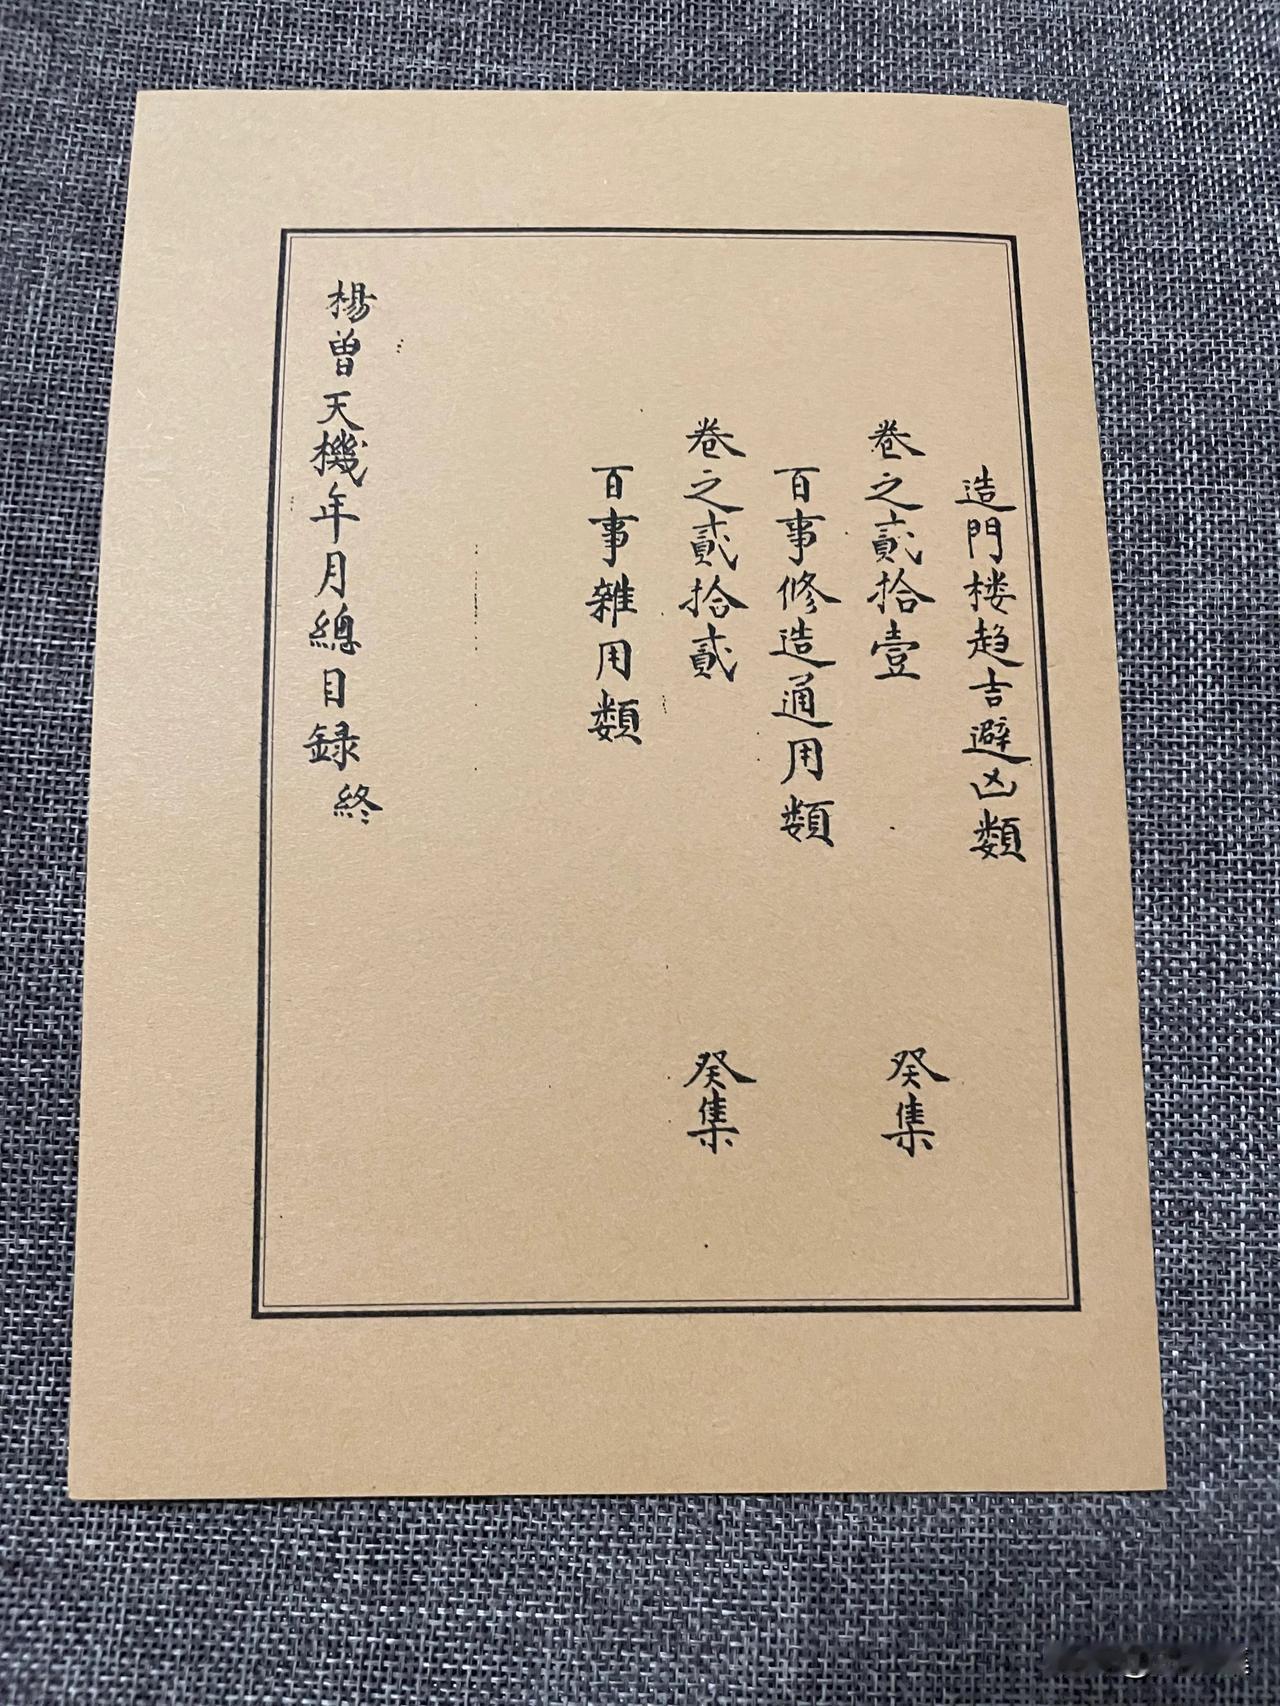 造門楼趋吉避凶類
卷之貳拾壹 癸集
百事修造通用類
卷之貳拾貳 癸集
百事雜用類
楊曽天機年月總目録終